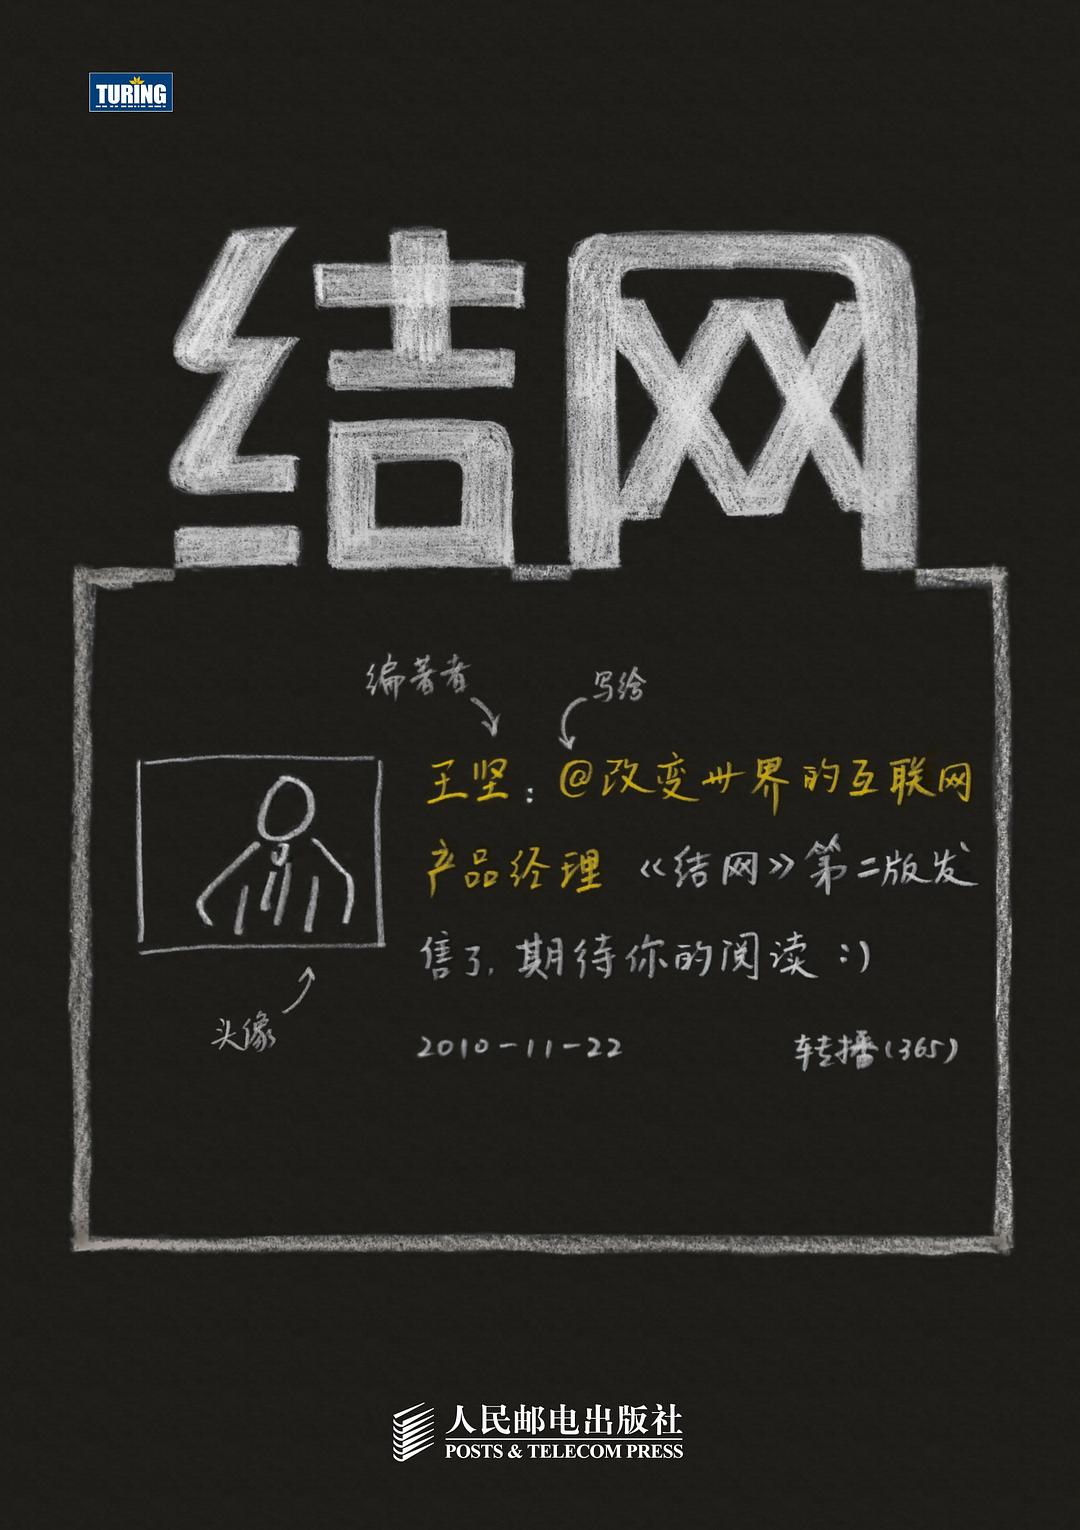 TURING
结网
编著者
写给
王坚：@改变世界的互联网
产品经理 《结网》第二版发
售了，期待你的阅读 :)
头像
2010-11-22 转播(365)
人民邮电出版社
POSTS & TELECOM PRESS